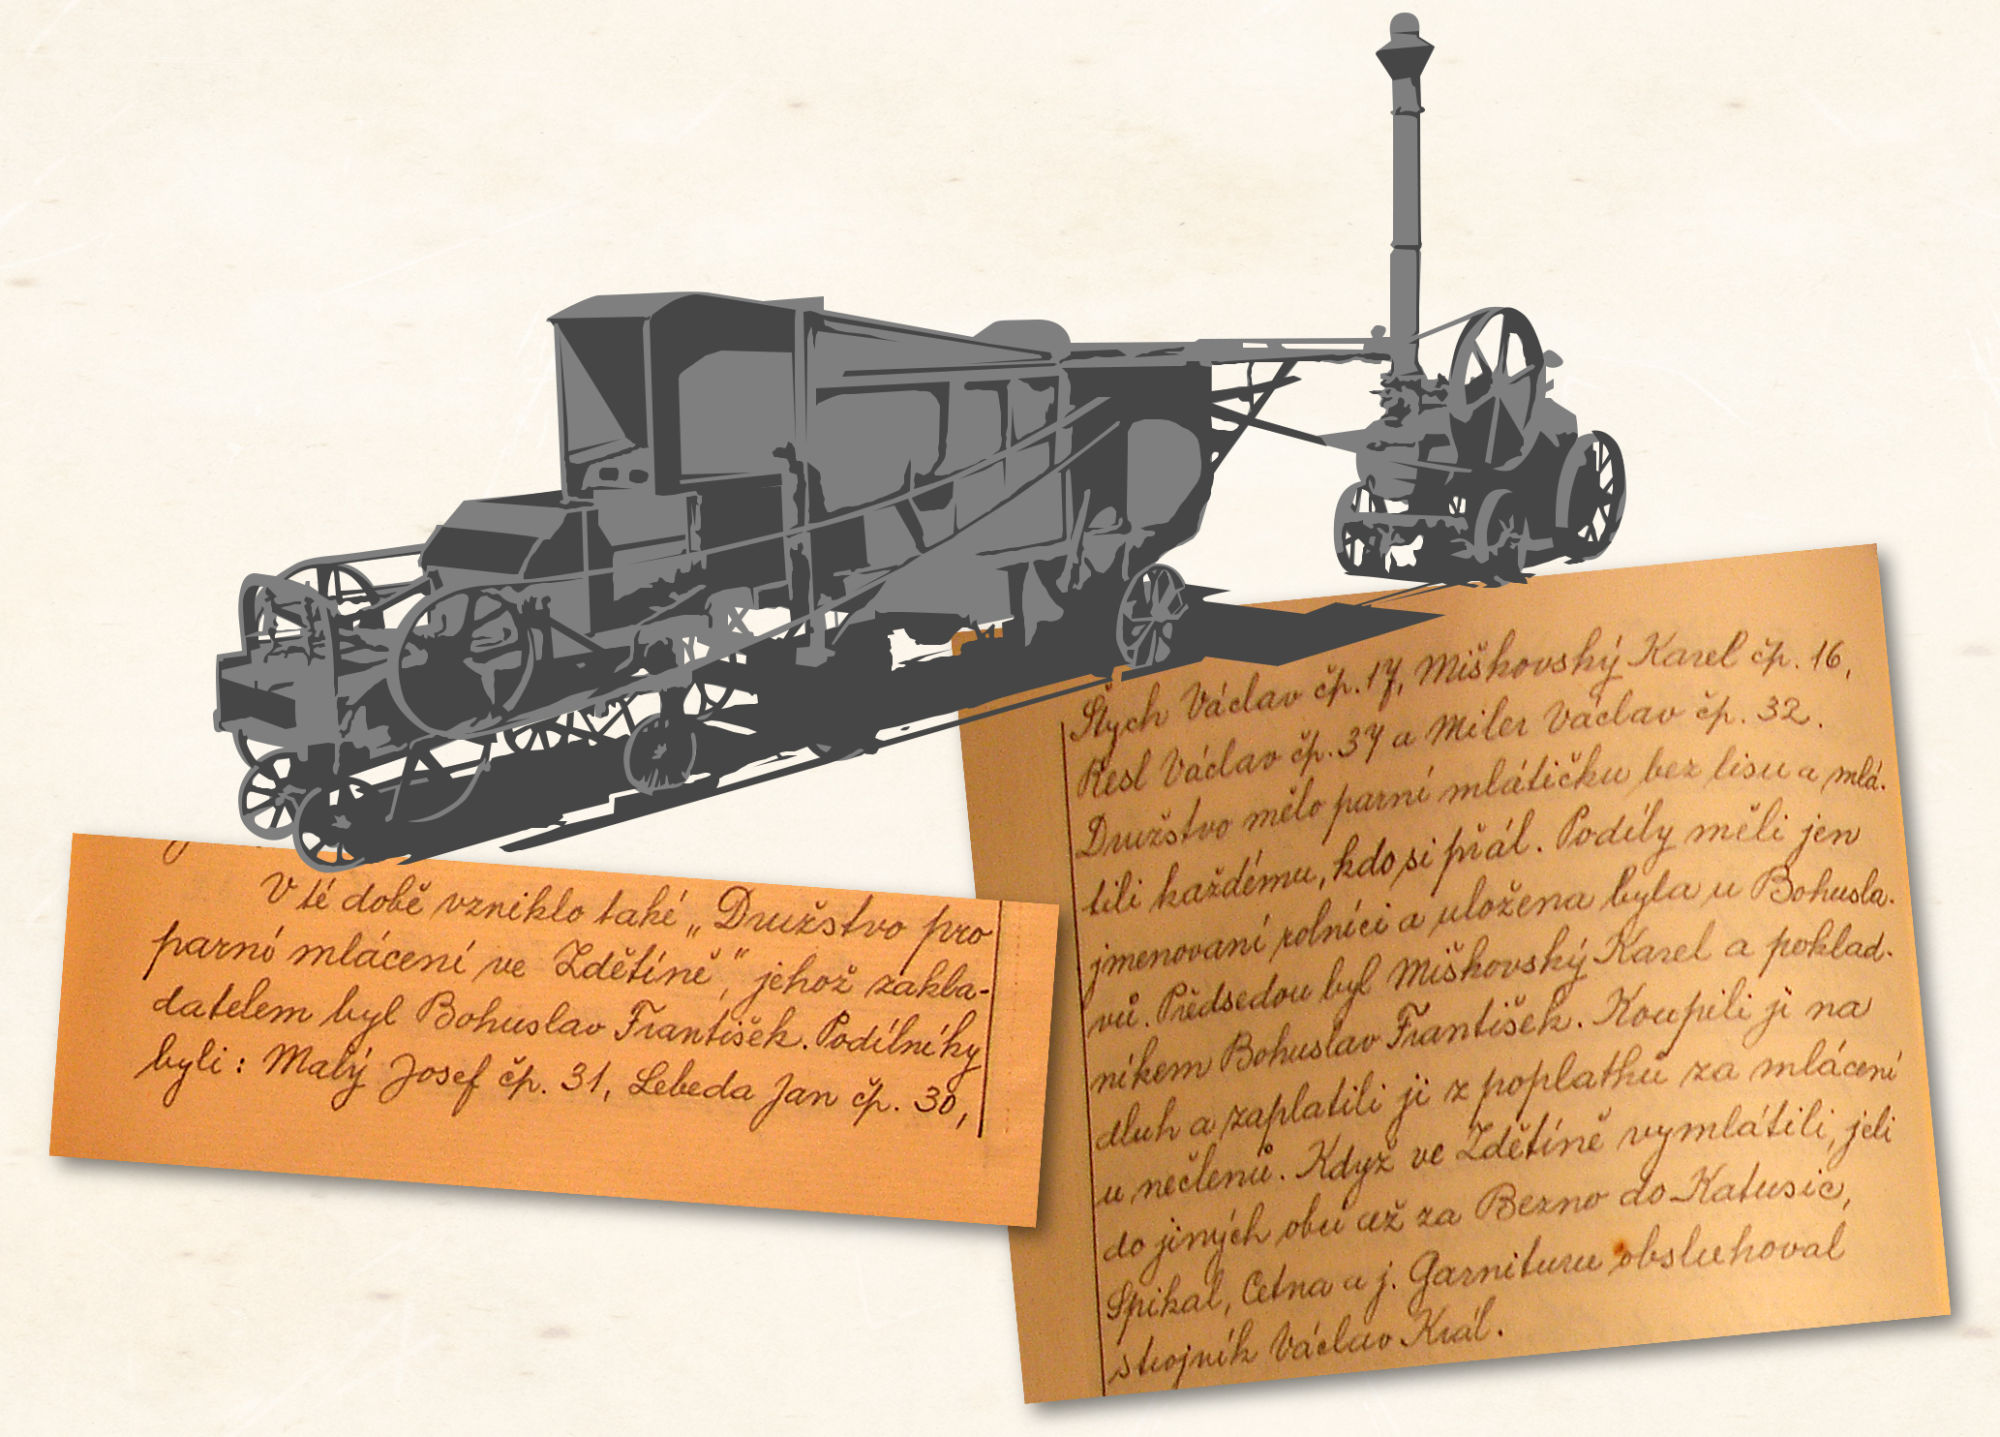 V té době vzniklo také „Družstvo pro
parní mlácení ve Zdětíně,“ jehož zakla-
datelem byl Bohuslav František. Podílníky
byli: Malý Josef čp. 31, Lebeda Jan čp. 30,
Štych Václav čp. 17, Miškovský Karel čp. 16,
Resl Václav čp. 37 a Miler Václav čp. 32.
Družstvo mělo parní mlátičku bez lisu a mlá-
tili každému, kdo si přál. Podíly měli jen
jmenovaní rolníci a uložena byla u Bohusla-
vů. Předsedou byl Miškovský Karel a poklad-
níkem Bohuslav František. Koupili ji na
dluh a zaplatili ji z poplatků za mlácení
u nečlenů. Když ve Zdětíně vymlátili, jeli
do jiných obcí až za Bezno do Katusic,
Spikal, Cetna a j. Garnituru obsluhoval
strojník Václav Král.